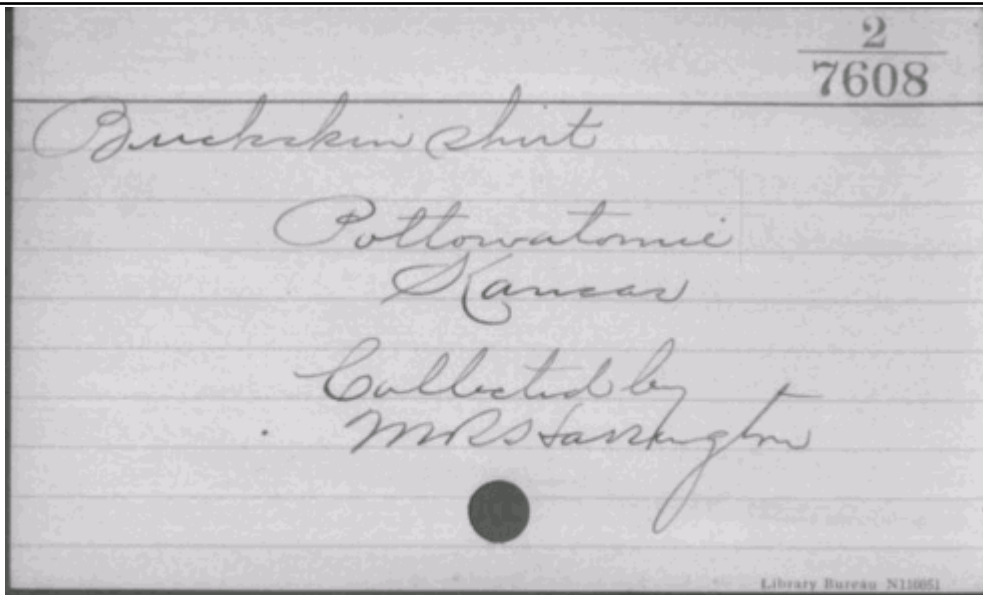 2
7608
Buckskin shirt
Pottowatomie
Kansas
Collected by
MRSHarrington
Library Bureau N116051